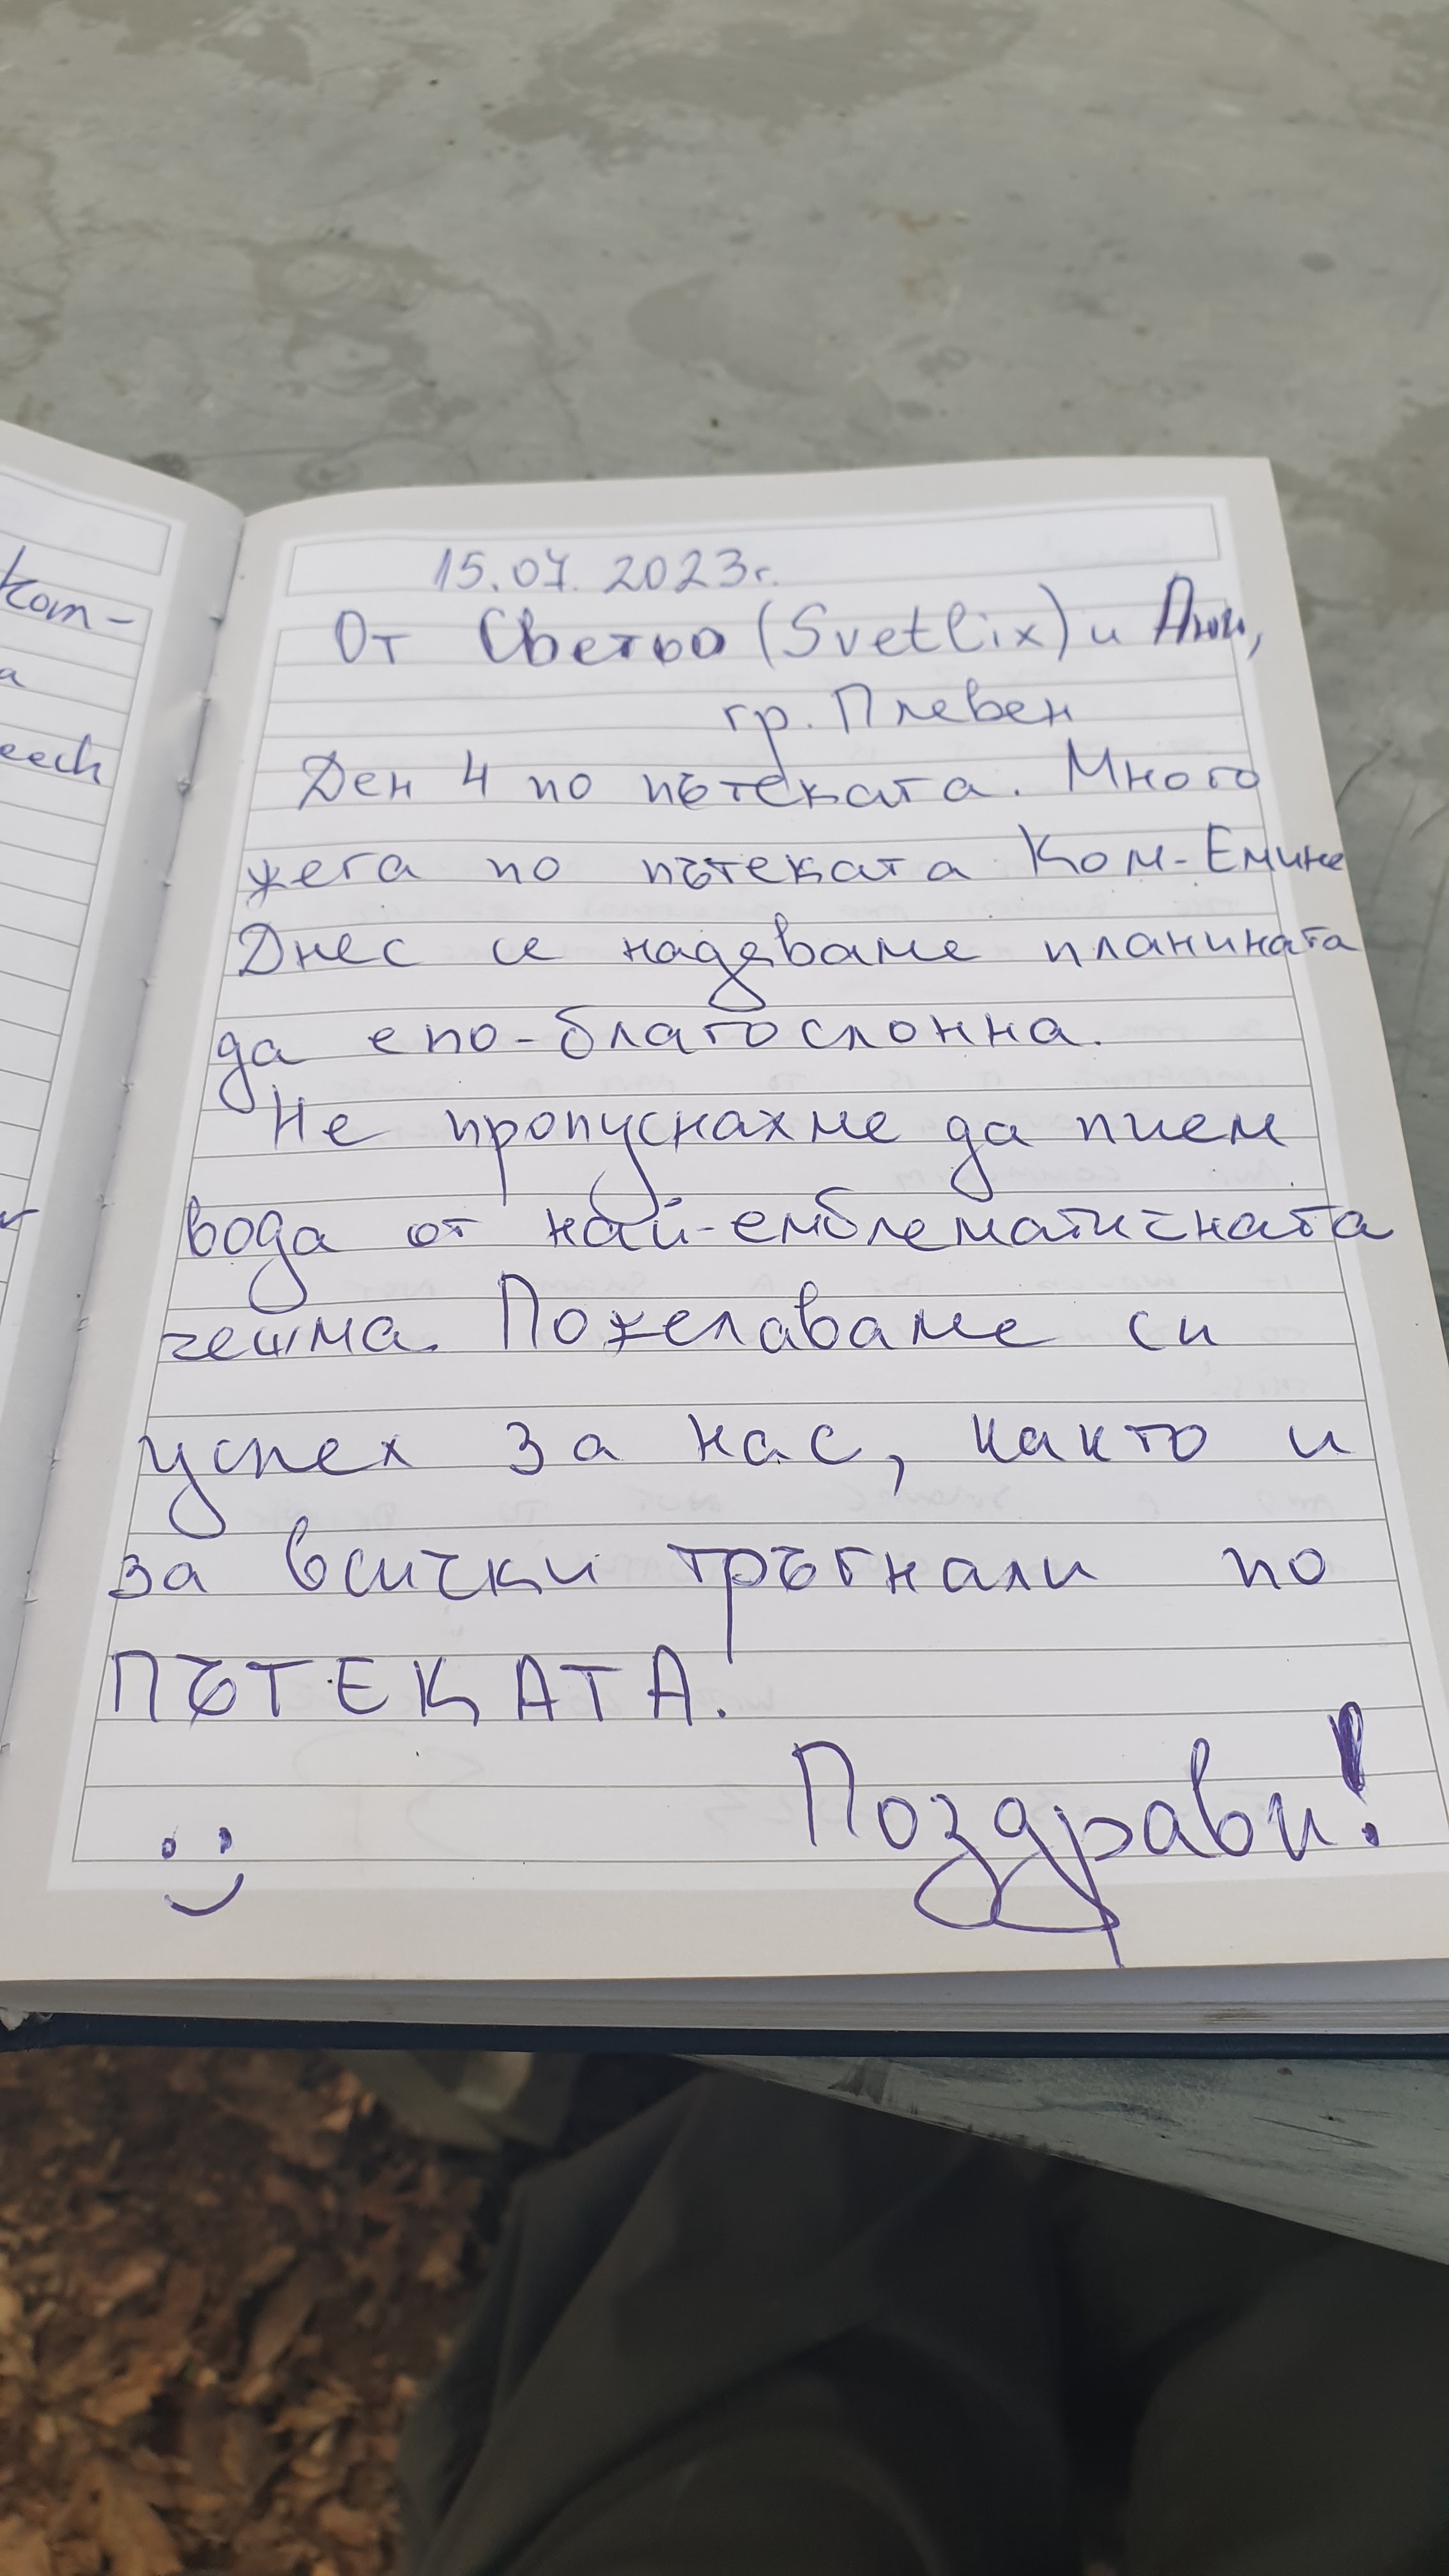 Kom-
a
eech
15.07.2023г.
От Светьо (Svetlix) и Ани,
гр. Плевен
Ден 4 по пътеката. Много
жега по пътеката Ком-Емине
Днес се надяваме планината
да е по-благосклонна.
Не пропуснахме да пием
вода от най-емблематичната
чешма. Пожелаваме си
успех за нас, както и
за всички тръгнали по
ПЪТЕКАТА.
Поздрави!